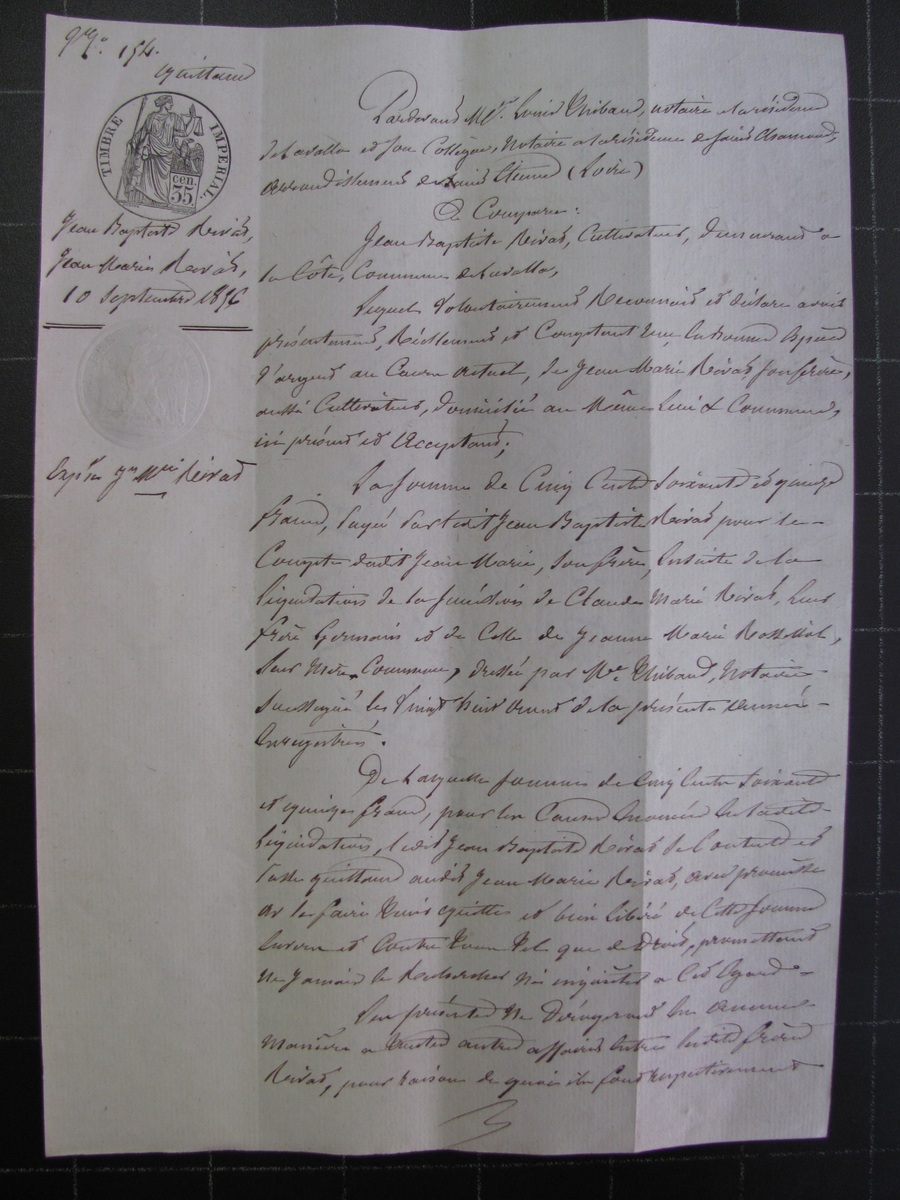 154.
quittance
TIMBRE IMPERIAL.
35 cen.
Jean Baptiste Rivat,
Jean Marie Rivat,
10 Septembre 1856
Jn Mie Rivat
Pardevant Me Louis Thibaud, notaire à la résidence
de Lavalla et son Collègue, Notaire à la résidence de Saint Chamond,
arrondissement de Saint Etienne (Loire)
a Comparu:
Jean Baptiste Rivat, Cultivateur, demeurant à
la Côte, Commune de Lavalla,
Lequel volontairement Reconnait et déclare avoir
présentement, Réellement et Comptant reçu en bonnes Espèces
d'argent au Cours actuel, de Jean Marie Rivat son frère,
aussi Cultivateur, domicilié au Même Lieu & Commune,
ici présent et Acceptant;
La somme de Cinq Cents Soixante et quinze
francs, payée par ledit Jean Baptiste Rivat pour le
Compte dudit Jean Marie, son frère, Ensuite de la
liquidation de la succession de Claude Marie Rivat, leur
frère Germain et de Celle de Jeanne Marie
leur Mère Commune, dressée par Me Thibaud, Notaire
soussigné les Vingt huit de la présente année
Enregistrée.
De Laquelle somme de Cinq Cents Soixante
et quinze francs, pour les Causes énoncées en ladite
liquidation, ledit Jean Baptiste Rivat se Contente et
passe quittance audit Jean Marie Rivat, avec promesse
de le faire tenir quitte et bien libéré de Cette somme
Envers et Contre tous tels que de Droit, promettant
Ne Jamais le Rechercher Ni inquiéter à Cet Egard.
Les présentes Ne Dérogeant En aucune
Manière à toutes autres affaires Entre lesdits frères
Rivat, pour raison de quoi ils font respectivement